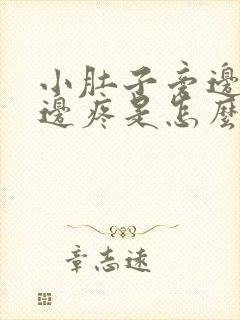 小肚子旁邊
邊疼是怎麼
章志遠